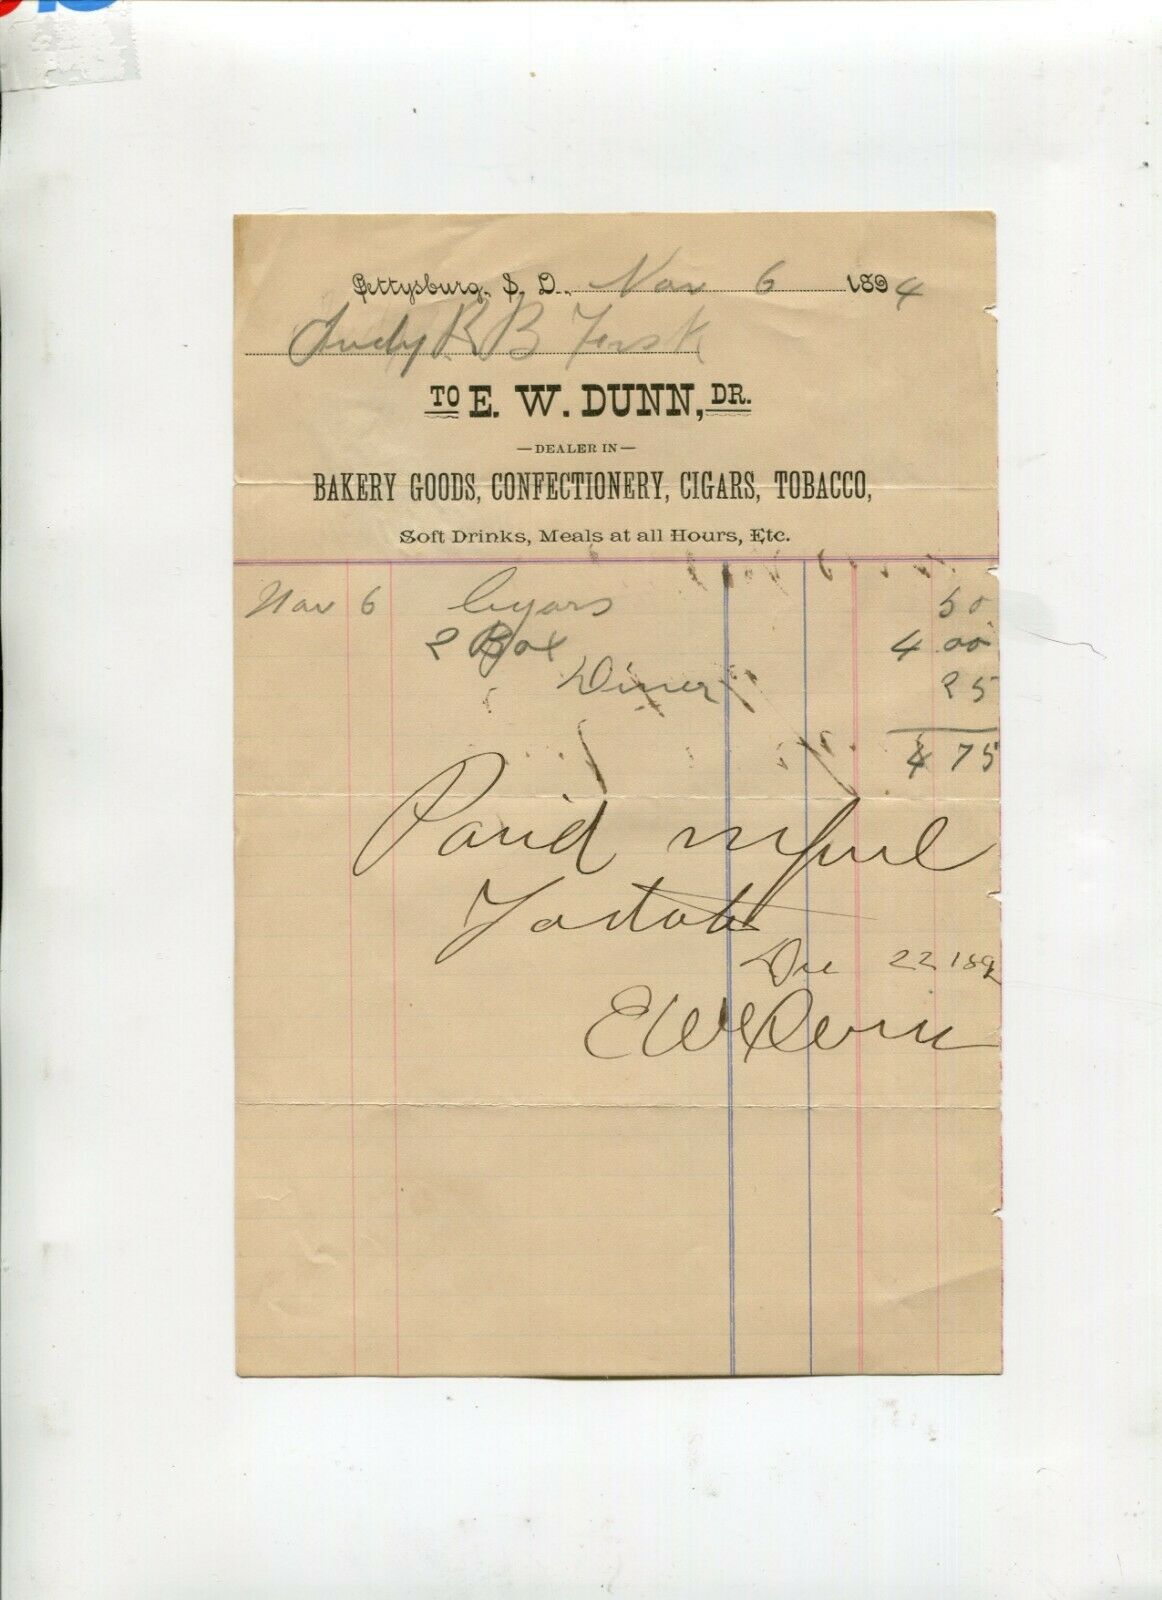 Gettysburg, S. D., Nov 6 1894
Judy R B Fisk
TO E. W. DUNN, DR.
—DEALER IN—
BAKERY GOODS, CONFECTIONERY, CIGARS, TOBACCO,
Soft Drinks, Meals at all Hours, Etc.
Nov 6 Cygars 50
2 Box 4 00
Diner 25
4 75
Paid in full
Dec 22 189
E W Dunn